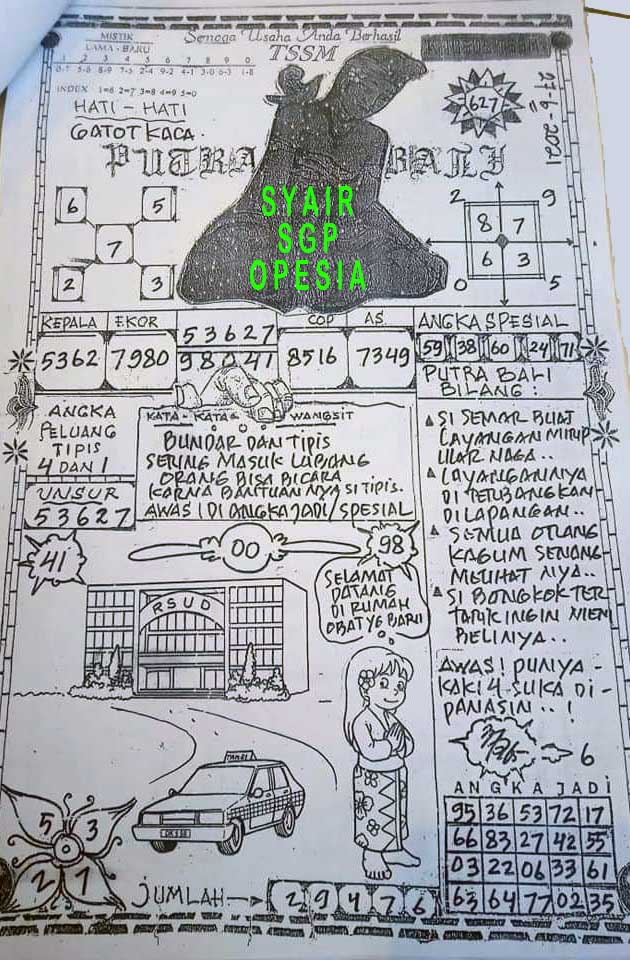 MISTIK
LAMA - BARU
1 2 3 4 5 6 7 8 9 0
0-7 5-8 8-9 7-3 2-4 9-2 4-1 3-0 6-3 1-8
INDEX 1=6 2=7 3=8 4=9 5=0
Semoga Usaha Anda Berhasil
TSSM
HATI - HATI
GATOT KACA.
627
27-6-2021
PUTRA BALI
SYAIR
SGP
OPESIA
6 5
7
2 3
2 9
8 7
6 3
0 5
KEPALA EKOR
5362 7980
53627
98041
COP AS
8516 7349
ANGKA SPESIAL
59 38 60 24 71
ANGKA
PELUANG
TIPIS
4 DAN 1
UNSUR
53627
KATA - KATA WANGSIT
BUNDAR DAN TIPIS
SERING MASUK LUBANG
ORANG BISA BICARA
KARNA BANTUAN NYA SI TIPIS.
AWAS 1 DI ANGKA JADI/SPESIAL
PUTRA BALI
BILANG :
SI SEMAR BUAT
LAYANGAN MIRIP
ULAR NAGA..
LAYANGANNYA
DI TERBANGKAN
DI LAPANGAN..
SEMUA ORANG
KAGUM SENANG
MELIHAT NYA..
SI BONGKOK TER
TARIK INGIN MEM
BELINYA..
AWAS! PUNYA -
KAKI 4 SUKA DI -
PANASIN..!
41
00
98
SELAMAT
DATANG
DI RUMAH
OBAT YG BARU
RSUD
6
5 3
2 7
JUMLAH
2 9 4 7 6
ANGKA JADI
95 36 53 72 17
66 83 27 42 55
03 22 06 33 61
63 64 77 02 35